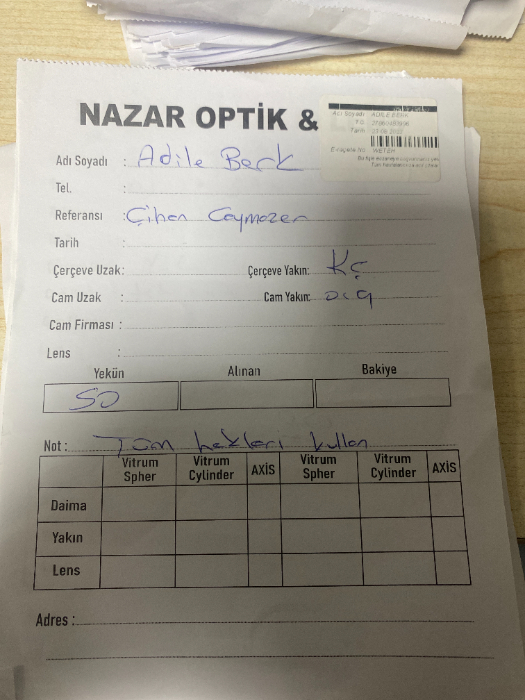 NAZAR OPTİK &
Adı Soyadı : ADİLE BERK
T.C.
Tarih
E-reçete No
Adı Soyadı : Adile Berk
Tel. :
Referansı : Cihan Caymazer
Tarih :
Çerçeve Uzak: Çerçeve Yakın: KÇ
Cam Uzak : Cam Yakın:
Cam Firması :
Lens :
Yekün Alınan Bakiye
50
Not : Tüm hakları kullan
Vitrum Spher Vitrum Cylinder AXİS Vitrum Spher Vitrum Cylinder AXİS
Daima
Yakın
Lens
Adres :